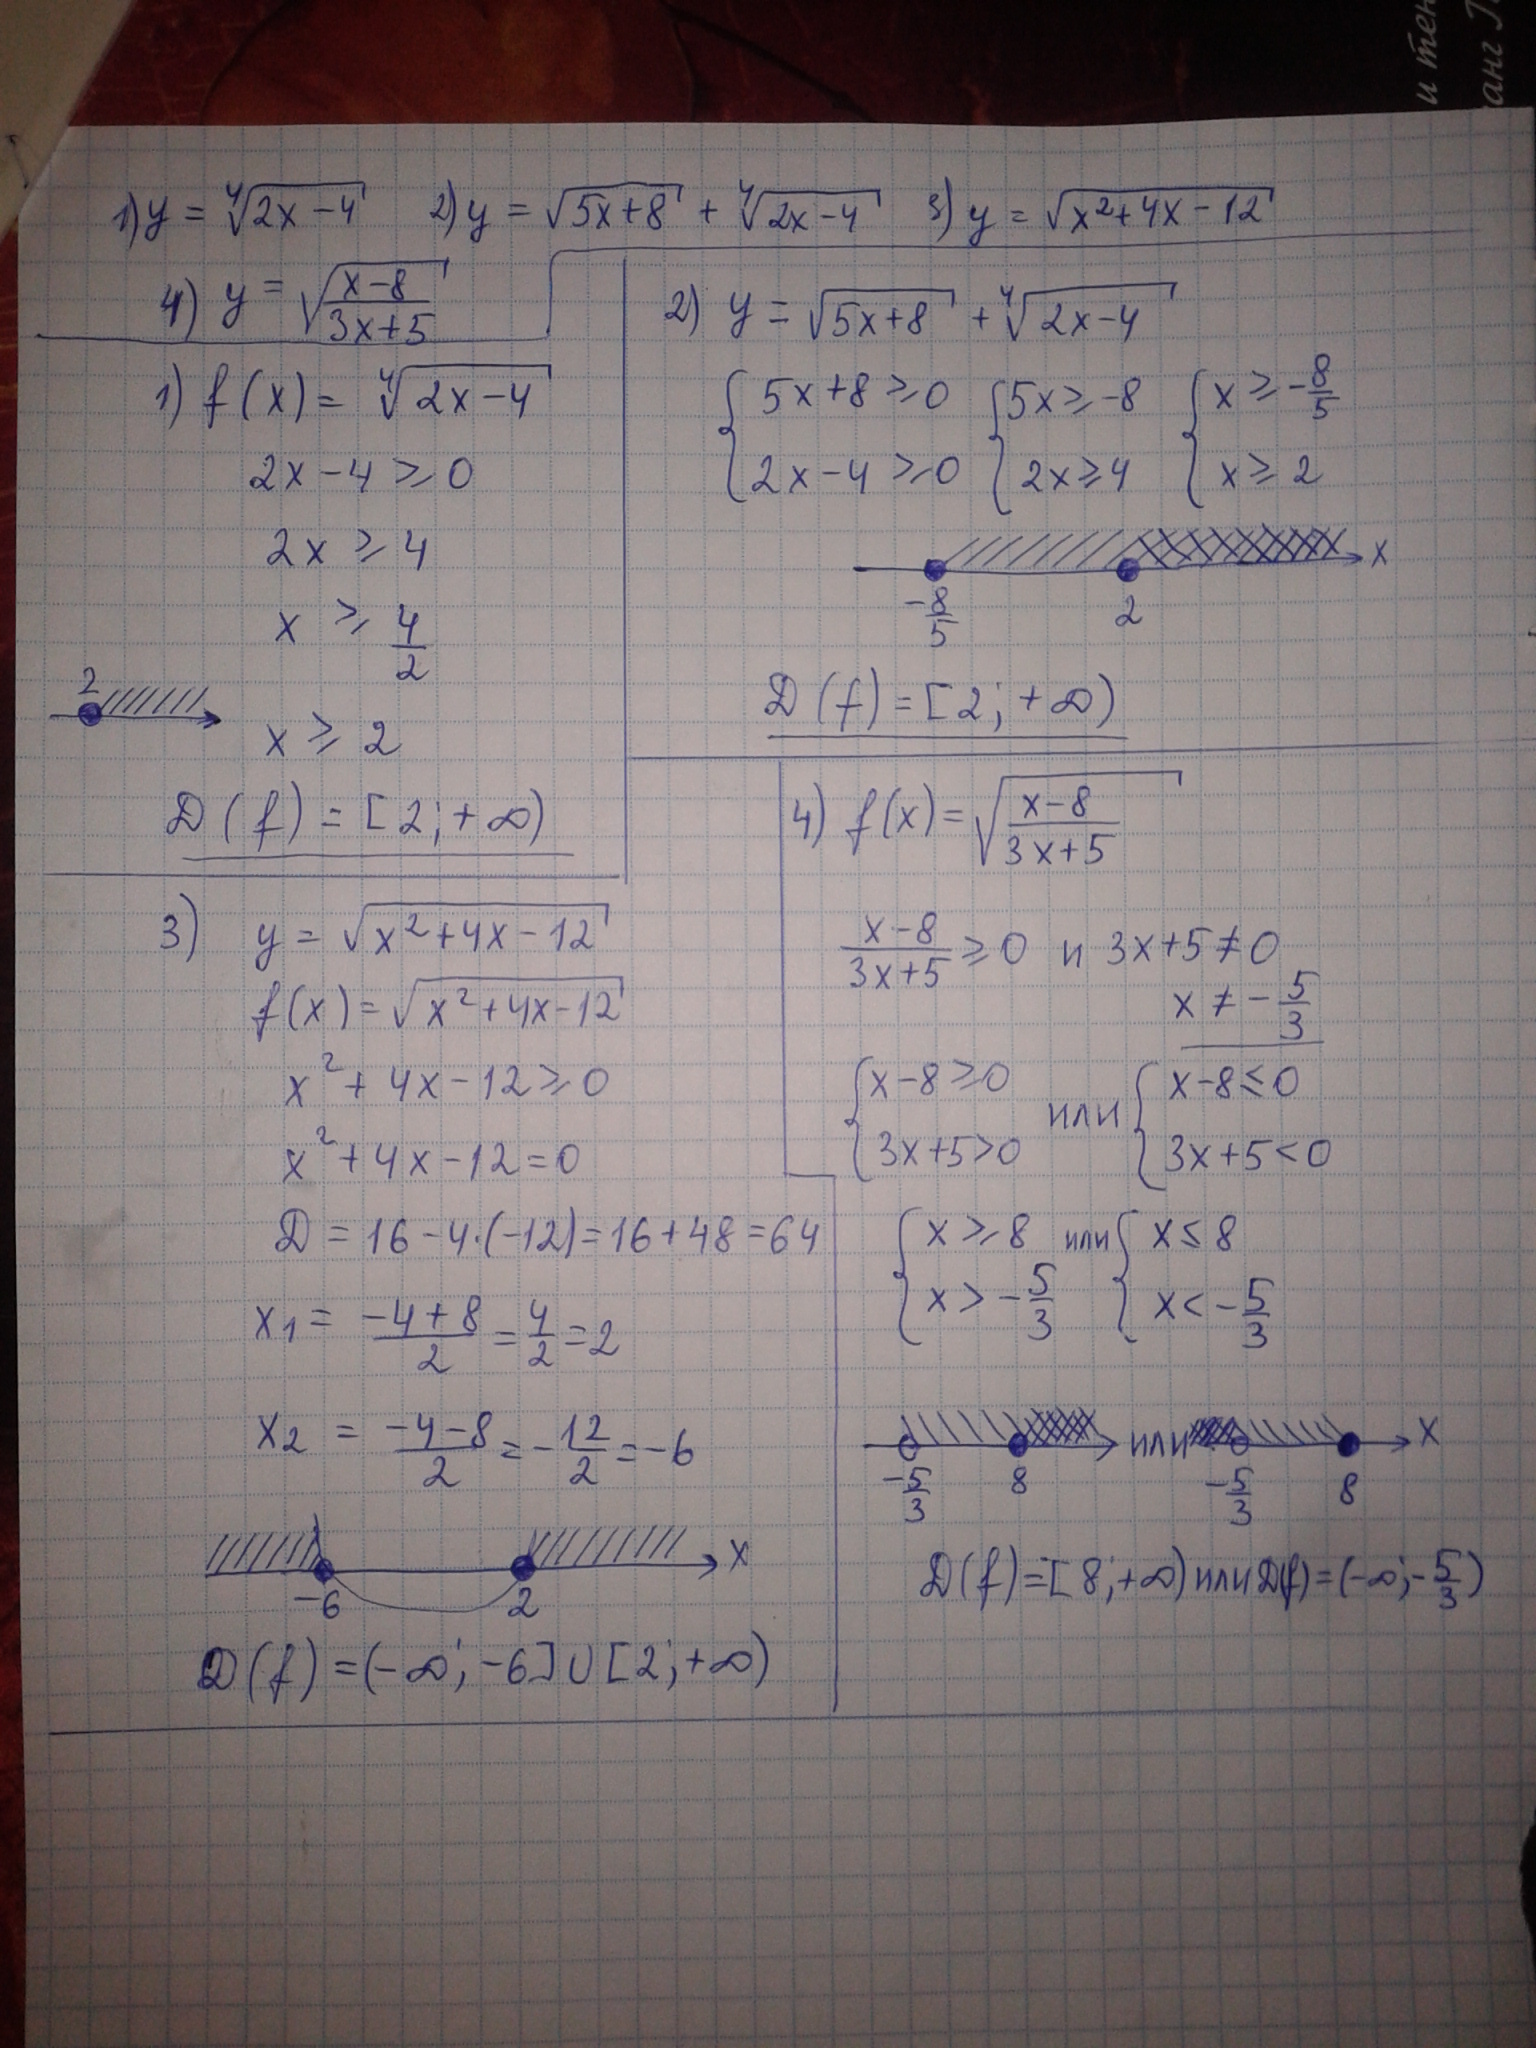 и тен
анг Г
1) y = ⁴√(2x-4)  2) y = √(5x+8) + ⁴√(2x-4)  3) y = √(x²+4x-12)
4) y = √((x-8)/(3x+5))
1) f(x) = ⁴√(2x-4)
2x-4 ≥ 0
2x ≥ 4
x ≥ 4/2
2
x ≥ 2
D(f) = [2; +∞)
2) y = √(5x+8) + ⁴√(2x-4)
{5x+8 ≥ 0  {5x ≥ -8  {x ≥ -8/5
{2x-4 ≥ 0  {2x ≥ 4  {x ≥ 2
x
-8/5  2
D(f) = [2; +∞)
3) y = √(x²+4x-12)
f(x) = √(x²+4x-12)
x²+4x-12 ≥ 0
x²+4x-12 = 0
D = 16-4·(-12) = 16+48 = 64
x₁ = (-4+8)/2 = 4/2 = 2
x₂ = (-4-8)/2 = -12/2 = -6
x
-6  2
D(f) = (-∞; -6] ∪ [2; +∞)
4) f(x) = √((x-8)/(3x+5))
(x-8)/(3x+5) ≥ 0 и 3x+5 ≠ 0
x ≠ -5/3
{x-8 ≥ 0 или {x-8 ≤ 0
{3x+5 > 0  {3x+5 < 0
{x ≥ 8 или {x ≤ 8
{x > -5/3  {x < -5/3
или x
-5/3  8  -5/3  8
D(f) = [8; +∞) или D(f) = (-∞; -5/3)